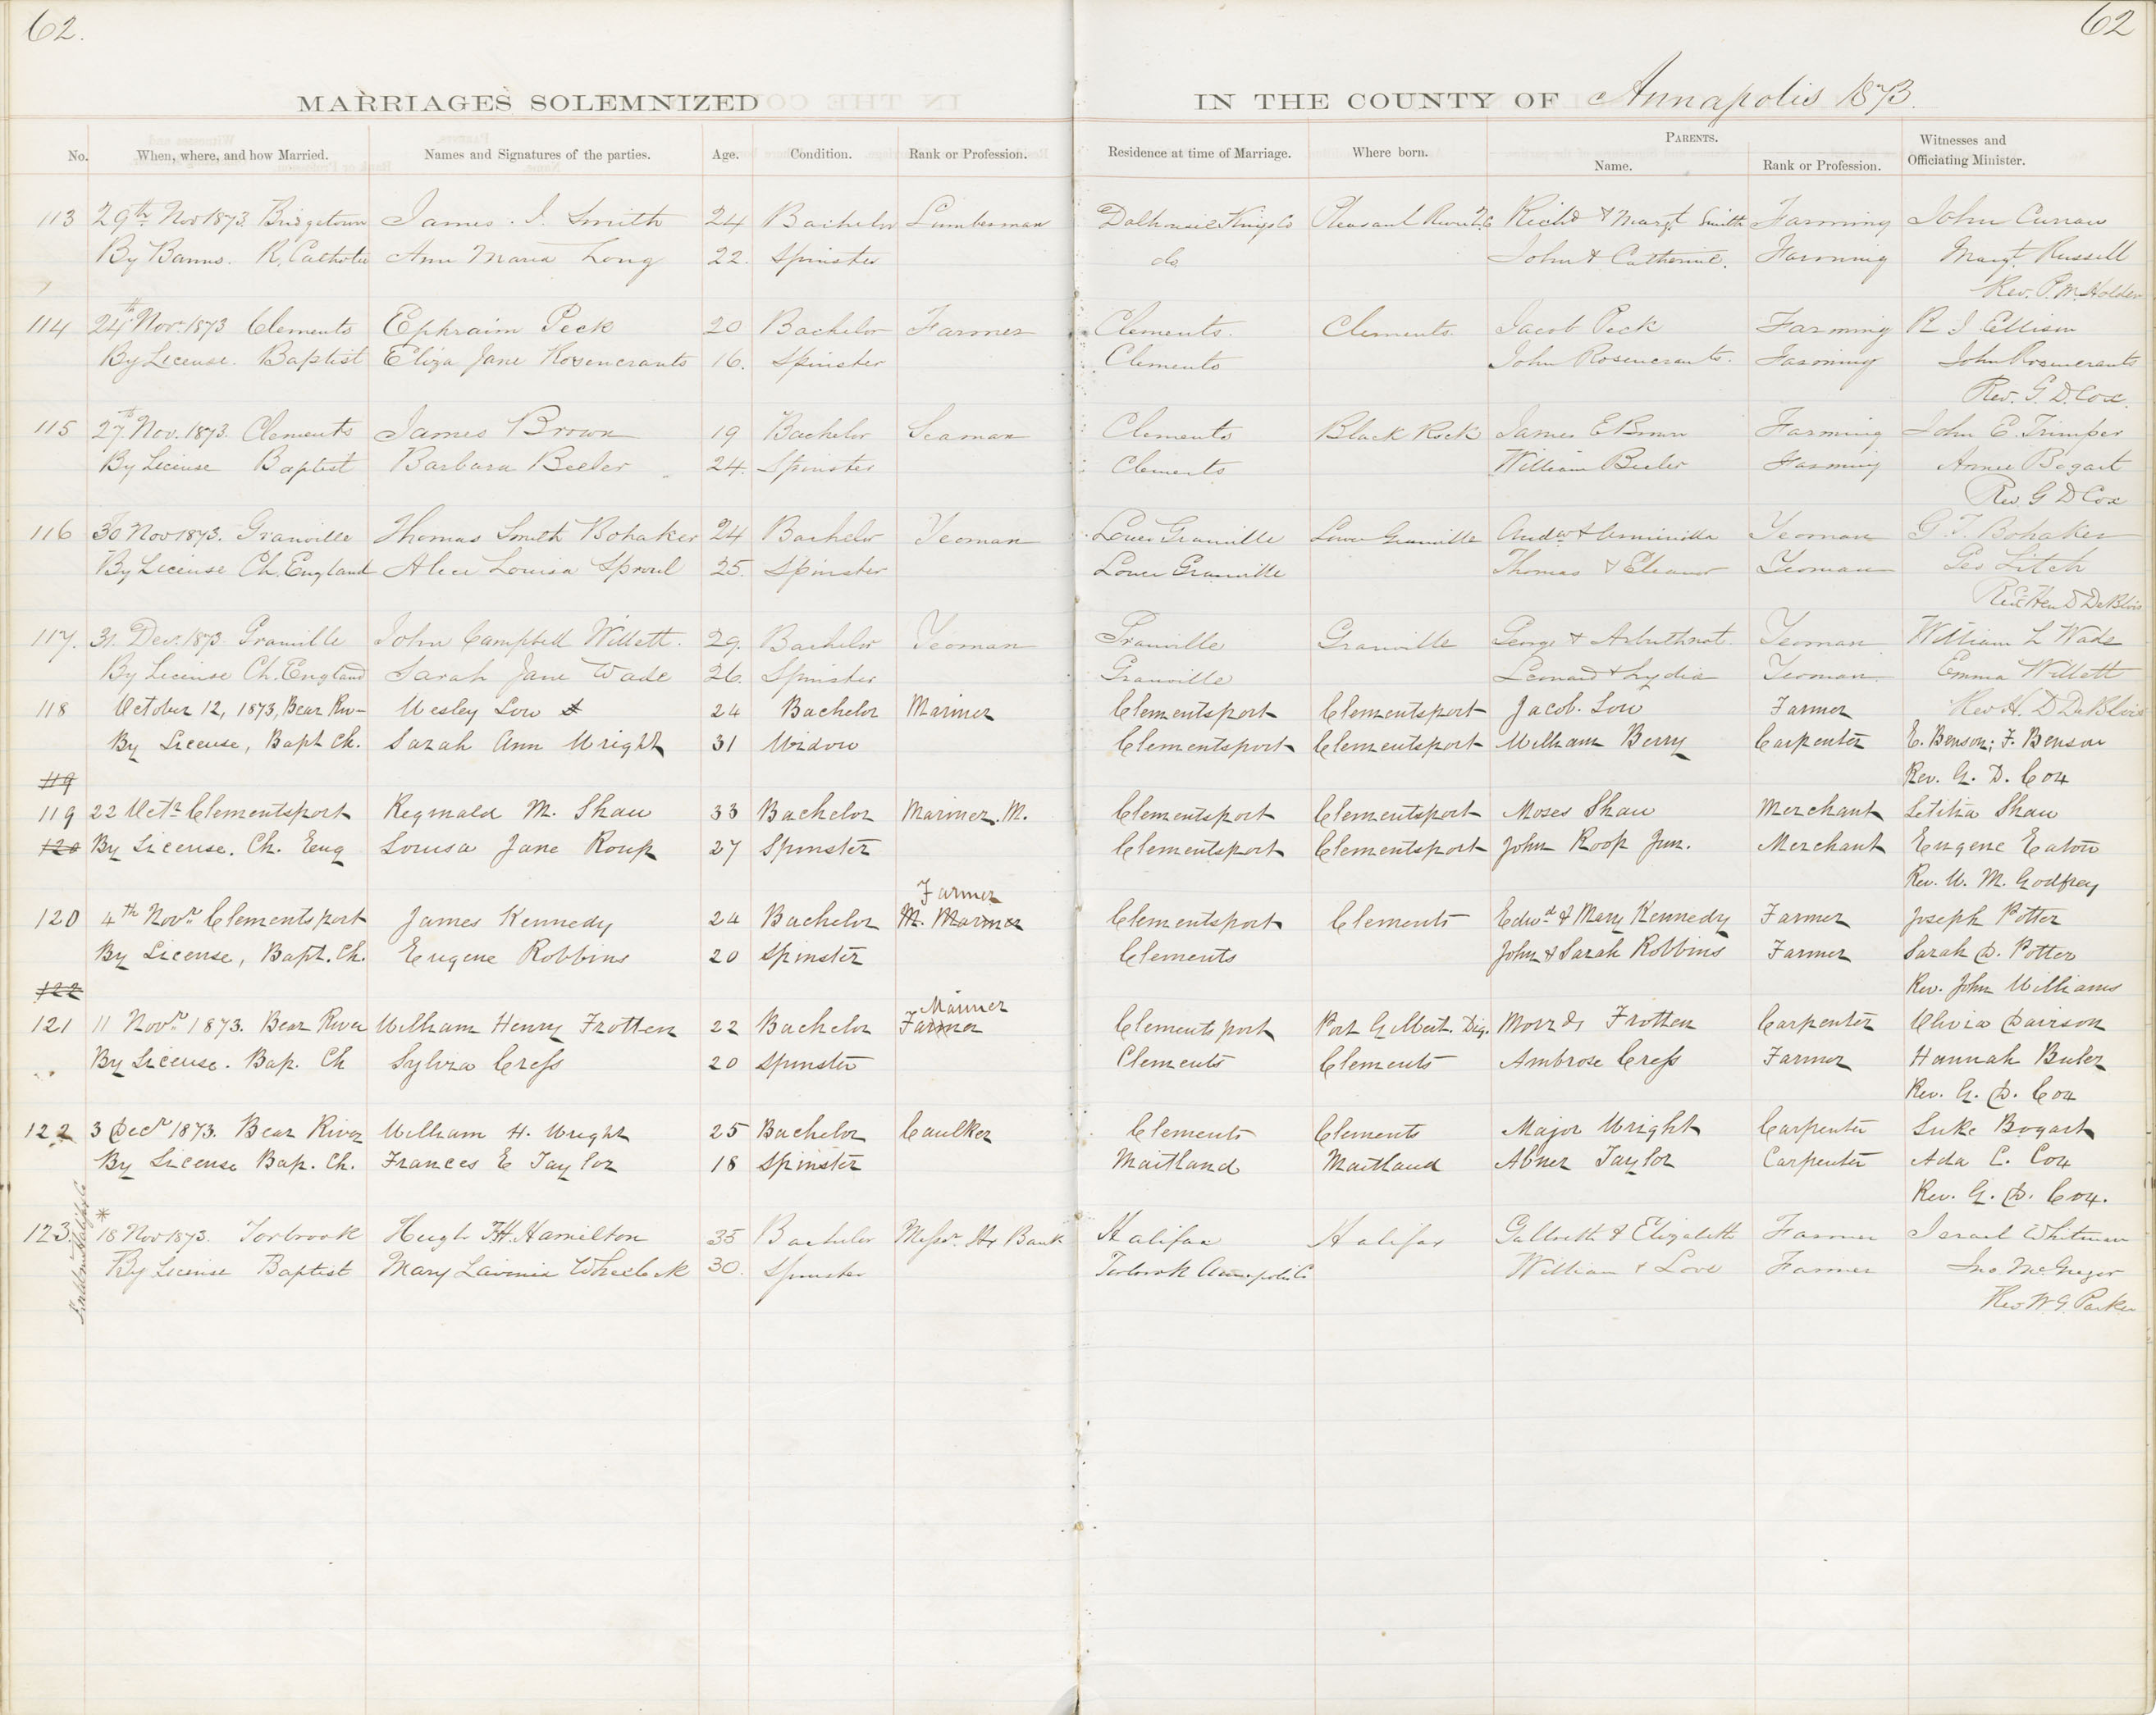 62.
62
MARRIAGES SOLEMNIZED
IN THE COUNTY OF Annapolis 1873.
No. When, where, and how Married. Names and Signatures of the parties. Age. Condition. Rank or Profession. Residence at time of Marriage. Where born. PARENTS. Name. Rank or Profession. Witnesses and Officiating Minister.
113 29th Nov 1873 Bridgetown James. I. Smith 24 Bachelor Lumberman Dalhousie Kings Co Pleasant River Richd & Margt Smith Farming John Curran
By Banns. R. Catholic Ann Maria Long 22. Spinster do John & Catherine. Farming Margt. Russell
Rev. P. M. Holden
114 24th Nov. 1873 Clements Ephraim Peck 20 Bachelor Farmer Clements. Clements. Jacob Peck Farming R J Ellison
By License. Baptist Eliza Jane Rosencrants 16. Spinster Clements John Rosencrants. Farming John Rosencrants
Rev. G. D. Cox.
115 27th Nov. 1873. Clements James Brown 19 Bachelor Seaman Clements Black Rock James E Brown Farming John E. Trimper
By License Baptist Barbara Beeler 24. Spinster Clements William Beeler Farming Annie Bogart
Rev. G D Cox
116 30 Nov 1873. Granville Thomas Smith Bohaker 24 Bachelor Yeoman Lower Granville Lower Granville Andw & Yeoman G. T. Bohaker
By License Ch. England Alice Louisa Sproul 25. Spinster Lower Granville Thomas & Eleanor Yeoman Geo Litch
Rev. Hen D DeBlois
117. 31. Decr. 1873 Granville John Campbell Willett. 29. Bachelor Yeoman Granville Granville George & Arbuthnot. Yeoman William L Wade
By License Ch. England Sarah Jane Wade 26. Spinster Granville Leonard & Lydia Yeoman. Emma Willett
Rev H. D DeBlois
118 October 12, 1873, Bear Riv- Wesley Low 24 Bachelor Mariner Clementsport Clementsport Jacob. Low Farmer
By License, Bapt Ch. Sarah Ann Wright 31 Widow Clementsport Clementsport William Berry Carpenter E. Benson; F. Benson
119 Rev. G. D. Cox
119 22 Octr. Clementsport Reginald M. Shaw 33 Bachelor Mariner. M. Clementsport Clementsport Moses Shaw Merchant Letitia Shaw
120 By License. Ch. Eng Louisa Jane Roup 27 Spinster Clementsport Clementsport John Roop Jun. Merchant Eugene Eaton
Rev. W. M. Godfrey
Farmer
120 4th Novr. Clementsport James Kennedy 24 Bachelor M. Mariner Clementsport Clements Edwd & Mary Kennedy Farmer Joseph Potter
By License, Bapt. Ch. Eugene Robbins 20 Spinster Clements John & Sarah Robbins Farmer Sarah D. Potter
122 Rev. John Williams
Mariner
121 11 Novr. 1873. Bear River William Henry Frotten 22 Bachelor Farmer Clementsport Port Gilbert. Dig. Frotten Carpenter Olivia Davison
By License. Bap. Ch Sylvia Cress 20 Spinster Clements Clements Ambrose Cress Farmer Hannah Buler
Rev. G. D. Cox
122 3 Decr 1873. Bear River William H. Wright 25 Bachelor Caulker Clements Clements Major Wright Carpenter Luke Bogart
By License Bap. Ch. Frances E Taylor 18 Spinster Maitland Maitland Abner Taylor Carpenter Ada C. Cox
Rev. G. D. Cox.
123. * 18 Nov 1873. Torbrook Hugh H. Hamilton 35 Bachelor Messr. Hx Bank Halifax Halifax Galbreth & Elizabeth Farmer Israel Whitman
By License Baptist Mary Lavinia Wheelock 30. Spinster Torbrook Annapolis Co William & Love Farmer Jno McGregor
Rev W. G. Parker